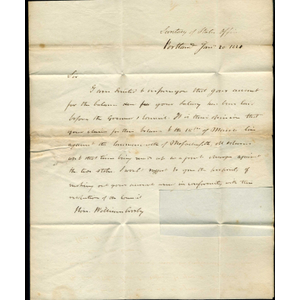 Secretary of State's Off.
Portland Jan: 20 1821
Sir
I am directed to inform you that your account
for the balance due for your Salary has been laid
before the Governor & Council. It is their decision that
your claim for the balance to the 15th of March lies
against the Commonwealth of Massachusetts
and that there being made out as a joint charge against
the two states I
making out your account anew in conformity with this
resolution of the Council
Hon. William Crosby